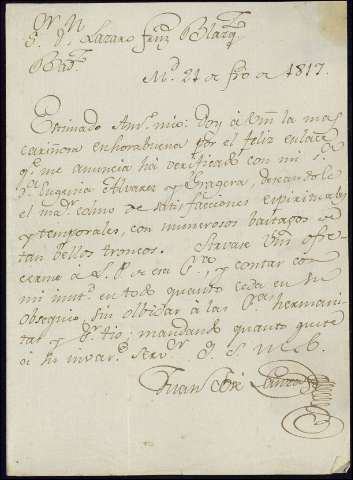 Sr. Dn. Lazaro Fernz. Blazqz.
M.d 21 de fro de 1817.
Estimado Am.o mio: Doy á Vm la mas
cariñosa enhorabuena por el feliz enlace
q.e me anuncia há verificado con mi S.a
D.a Eugenia Alvarez y Gragera, deseandole
el ma.r colmo de satisfacciones espirituales
y temporales, con numerosos bastagos de
tan bellos troncos. Sirvase Vm ofre-
cerme á L. P. de esa, y contar con
mi inut.d en todo quanto ceda en su
obsequio, sin olbidar á las hermani-
tas y S.r tio; mandando quanto guste
á su invar.e Serv.r Q. S. M. B.
Juan José